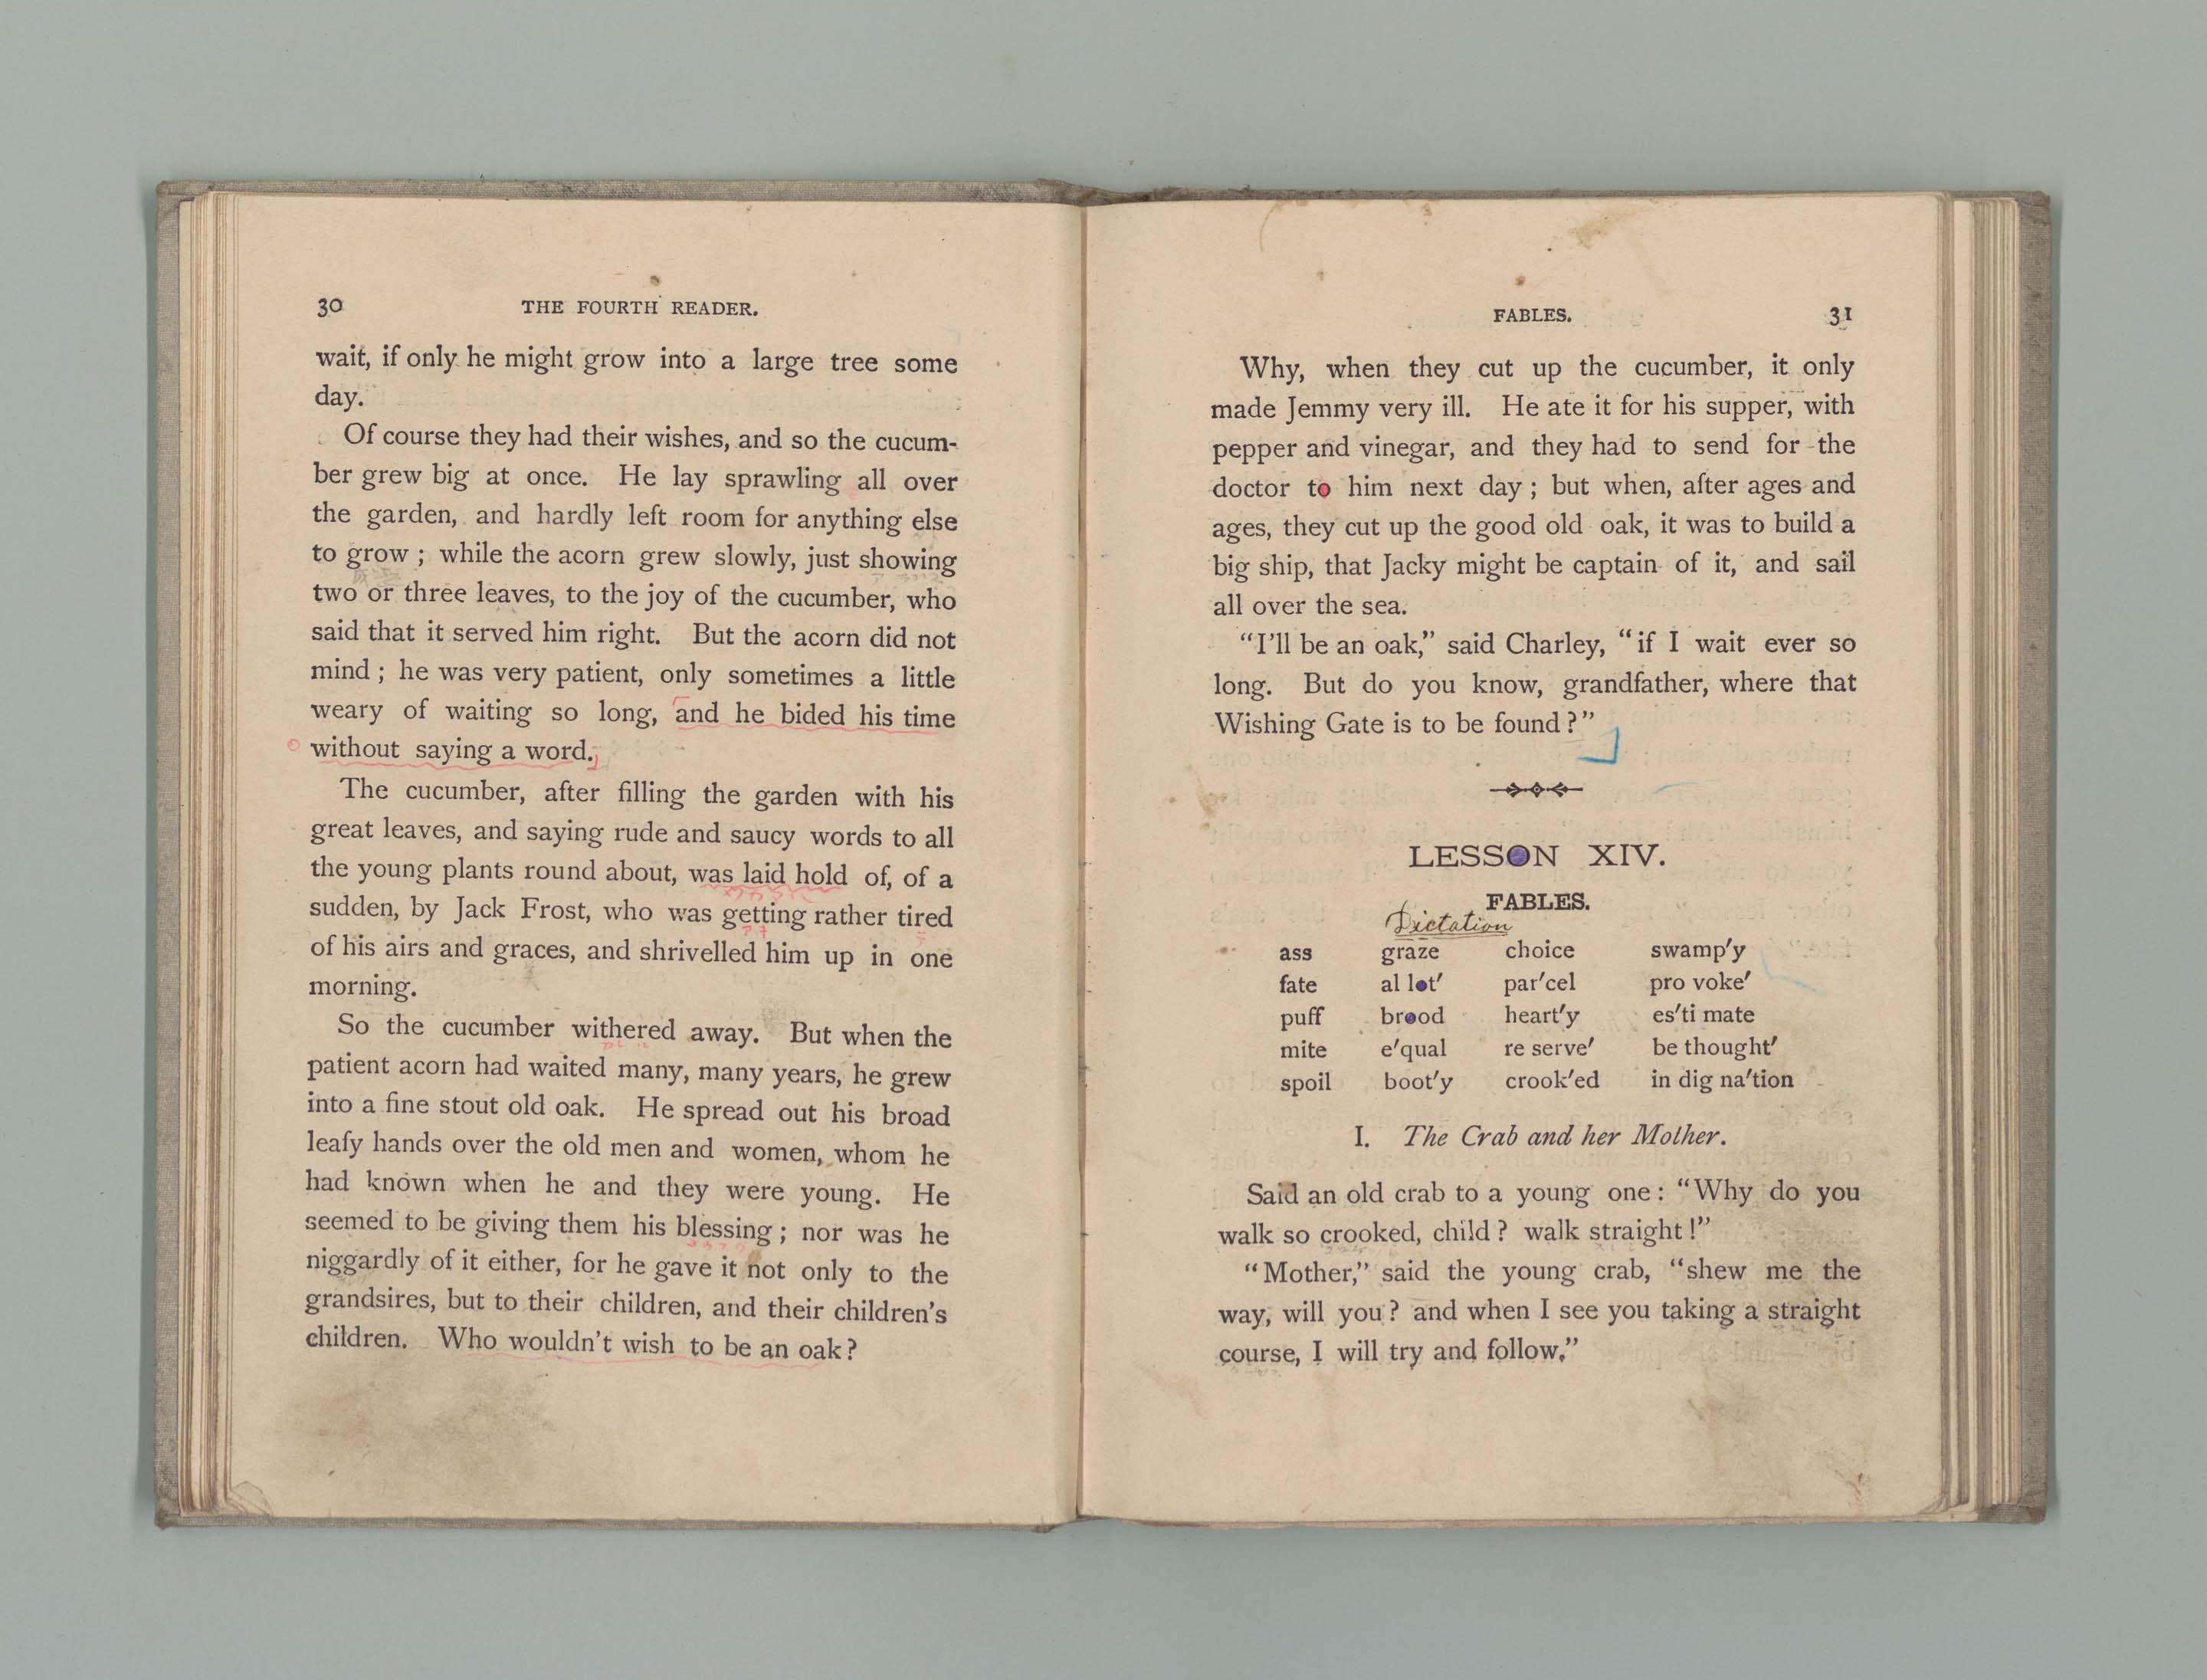 30
THE FOURTH READER.
wait, if only he might grow into a large tree some
day.
Of course they had their wishes, and so the cucum-
ber grew big at once. He lay sprawling all over
the garden, and hardly left room for anything else
to grow ; while the acorn grew slowly, just showing
two or three leaves, to the joy of the cucumber, who
said that it served him right. But the acorn did not
mind ; he was very patient, only sometimes a little
weary of waiting so long, and he bided his time
without saying a word.
The cucumber, after filling the garden with his
great leaves, and saying rude and saucy words to all
the young plants round about, was laid hold of, of a
sudden, by Jack Frost, who was getting rather tired
of his airs and graces, and shrivelled him up in one
morning.
So the cucumber withered away. But when the
patient acorn had waited many, many years, he grew
into a fine stout old oak. He spread out his broad
leafy hands over the old men and women, whom he
had known when he and they were young. He
seemed to be giving them his blessing ; nor was he
niggardly of it either, for he gave it not only to the
grandsires, but to their children, and their children's
children. Who wouldn't wish to be an oak?
FABLES.
31
Why, when they cut up the cucumber, it only
made Jemmy very ill. He ate it for his supper, with
pepper and vinegar, and they had to send for the
doctor to him next day ; but when, after ages and
ages, they cut up the good old oak, it was to build a
big ship, that Jacky might be captain of it, and sail
all over the sea.
“I'll be an oak,” said Charley, “if I wait ever so
long. But do you know, grandfather, where that
Wishing Gate is to be found?”
LESSON XIV.
FABLES.
Dictation
ass graze choice swamp′y
fate al lot′ par′cel pro voke′
puff brood heart′y es′ti mate
mite e′qual re serve′ be thought′
spoil boot′y crook′ed in dig na′tion
I. The Crab and her Mother.
Said an old crab to a young one : “Why do you
walk so crooked, child ? walk straight !”
“Mother,” said the young crab, “shew me the
way, will you ? and when I see you taking a straight
course, I will try and follow.”